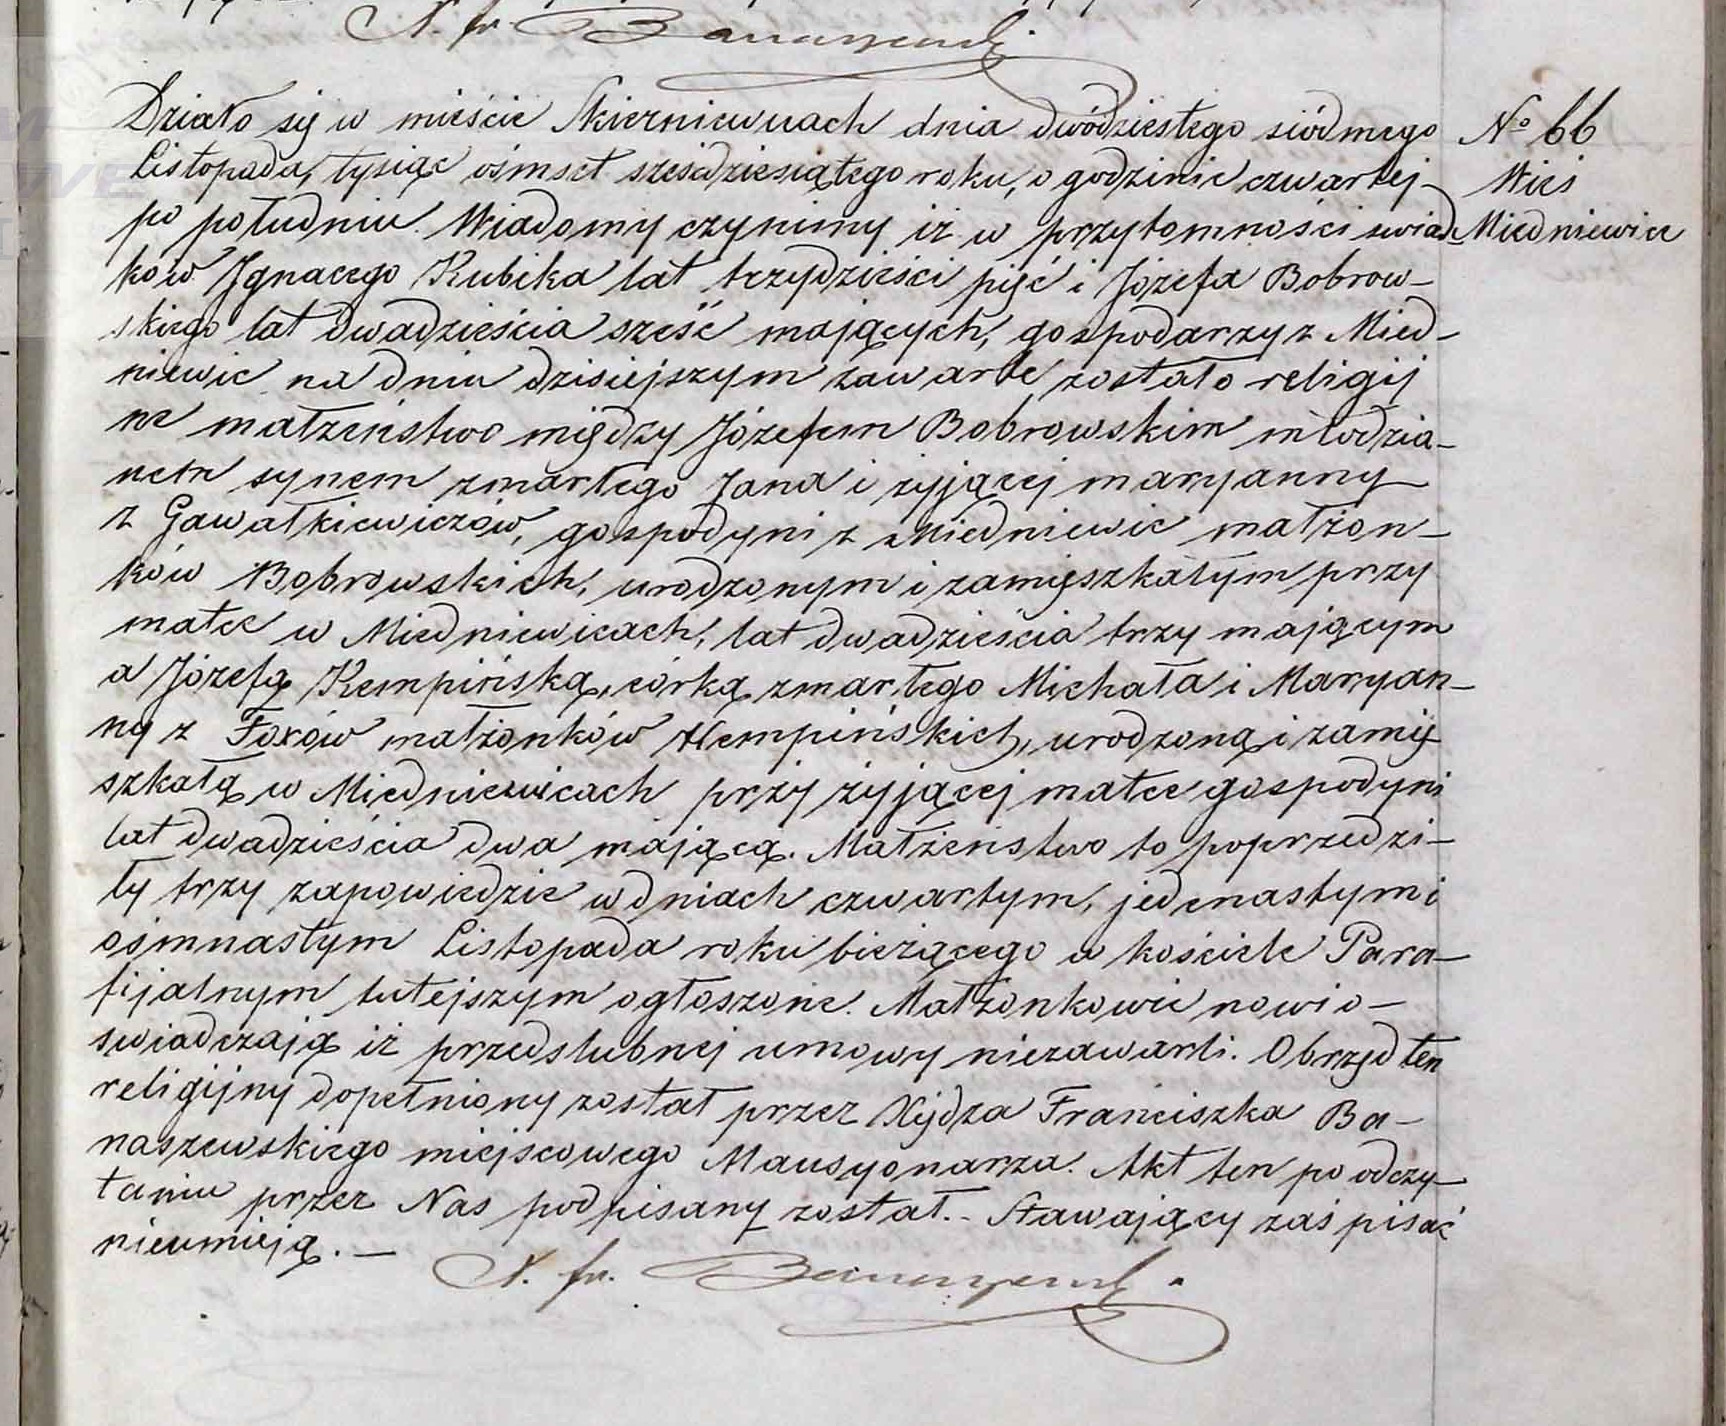 X. fr. Banaszewski
Działo się w mieście Skierniewicach dnia dwódziestego siódmego
Listopada, tysiąc ośmset sześdziesiątego roku, o godzinie czwartej
po południu. Wiadomy czynimy iż w przytomności świad-
ków Ignacego Kubika lat trzydzieści pięć i Józefa Bobrow-
skiego lat dwadzieścia sześć mających, gospodarzy z Mied-
niewic na dniu dzisiejszym zawarte zostało religij
ne małżeństwo między Józefem Bobrowskim młodzia-
nem synem zmarłego Jana i żyjącej maryanny
z Gawałkiewiczów, gospodyni z Miedniewic małżon-
ków Bobrowskich, urodzonym i zamięszkałym przy
matce w Miedniewicach, lat dwadzieścia trzy mającym
a Józefą Kempińską, córką zmarłego Michała i Maryan-
ny z Foxów małżonków Kempińskich, urodzoną i zamię
szkałą w Miedniewicach przy żyjącej matce gospodyni
lat dwadzieścia dwa mającą. Małżeństwo to poprzedzi-
ły trzy zapowiedzie w dniach czwartym, jedenastym i
ośmnastym Listopada roku bieżącego w kościele Para-
fijalnym tutejszym ogłoszone. Małżonkowie nowi o-
świadczają iż przedślubnej umowy niezawarli. Obrzęd ten
religijny dopełniony został przez Xiędza Franciszka Ba-
naszewskiego miejscowego Mansyonarza. Akt ten po odczy-
taniu przez Nas podpisany został. - Stawający zaś pisać
nieumieją. —
X. fr. Banaszewski.
No 66
Wieś
Miedniewice